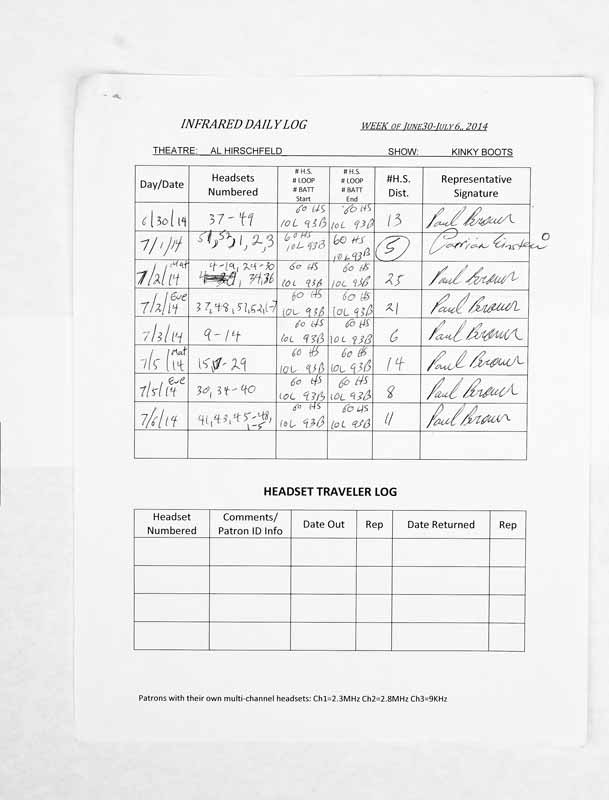 INFRARED DAILY LOG WEEK OF JUNE30-JULY 6,, 2014
THEATRE: AL HIRSCHFELD SHOW: KINKY BOOTS
Day/Date Headsets Numbered # H.S. # LOOP # BATT Start # H.S. # LOOP # BATT End #H.S. Dist. Representative Signature
6/30/14 37-49 60 HS 10L 93B 60 HS 10L 93B 13 Paul Brown
7/1/14 51,52,1,2,3 60 HS 10L 93B 60 HS 10L 93B 5
7/2/14 Mat 4-19, 24-30, 34,36 60 HS 10L 93B 60 HS 10L 93B 25 Paul Brown
7/2/14 Eve 37,48,51,52,1-7 60 HS 10L 93B 60 HS 10L 93B 21 Paul Brown
7/3/14 9-14 60 HS 10L 93B 60 HS 10L 93B 6 Paul Brown
7/5/14 Mat 15-29 60 HS 10L 93B 60 HS 10L 93B 14 Paul Brown
7/5/14 Eve 30, 34-40 60 HS 10L 93B 60 HS 10L 93B 8 Paul Brown
7/6/14 41,43,45-48, 1-5 60 HS 10L 93B 60 HS 10L 93B 11 Paul Brown
HEADSET TRAVELER LOG
Headset Numbered Comments/ Patron ID Info Date Out Rep Date Returned Rep
Patrons with their own multi-channel headsets: Ch1=2.3MHz Ch2=2.8MHz Ch3=9KHz